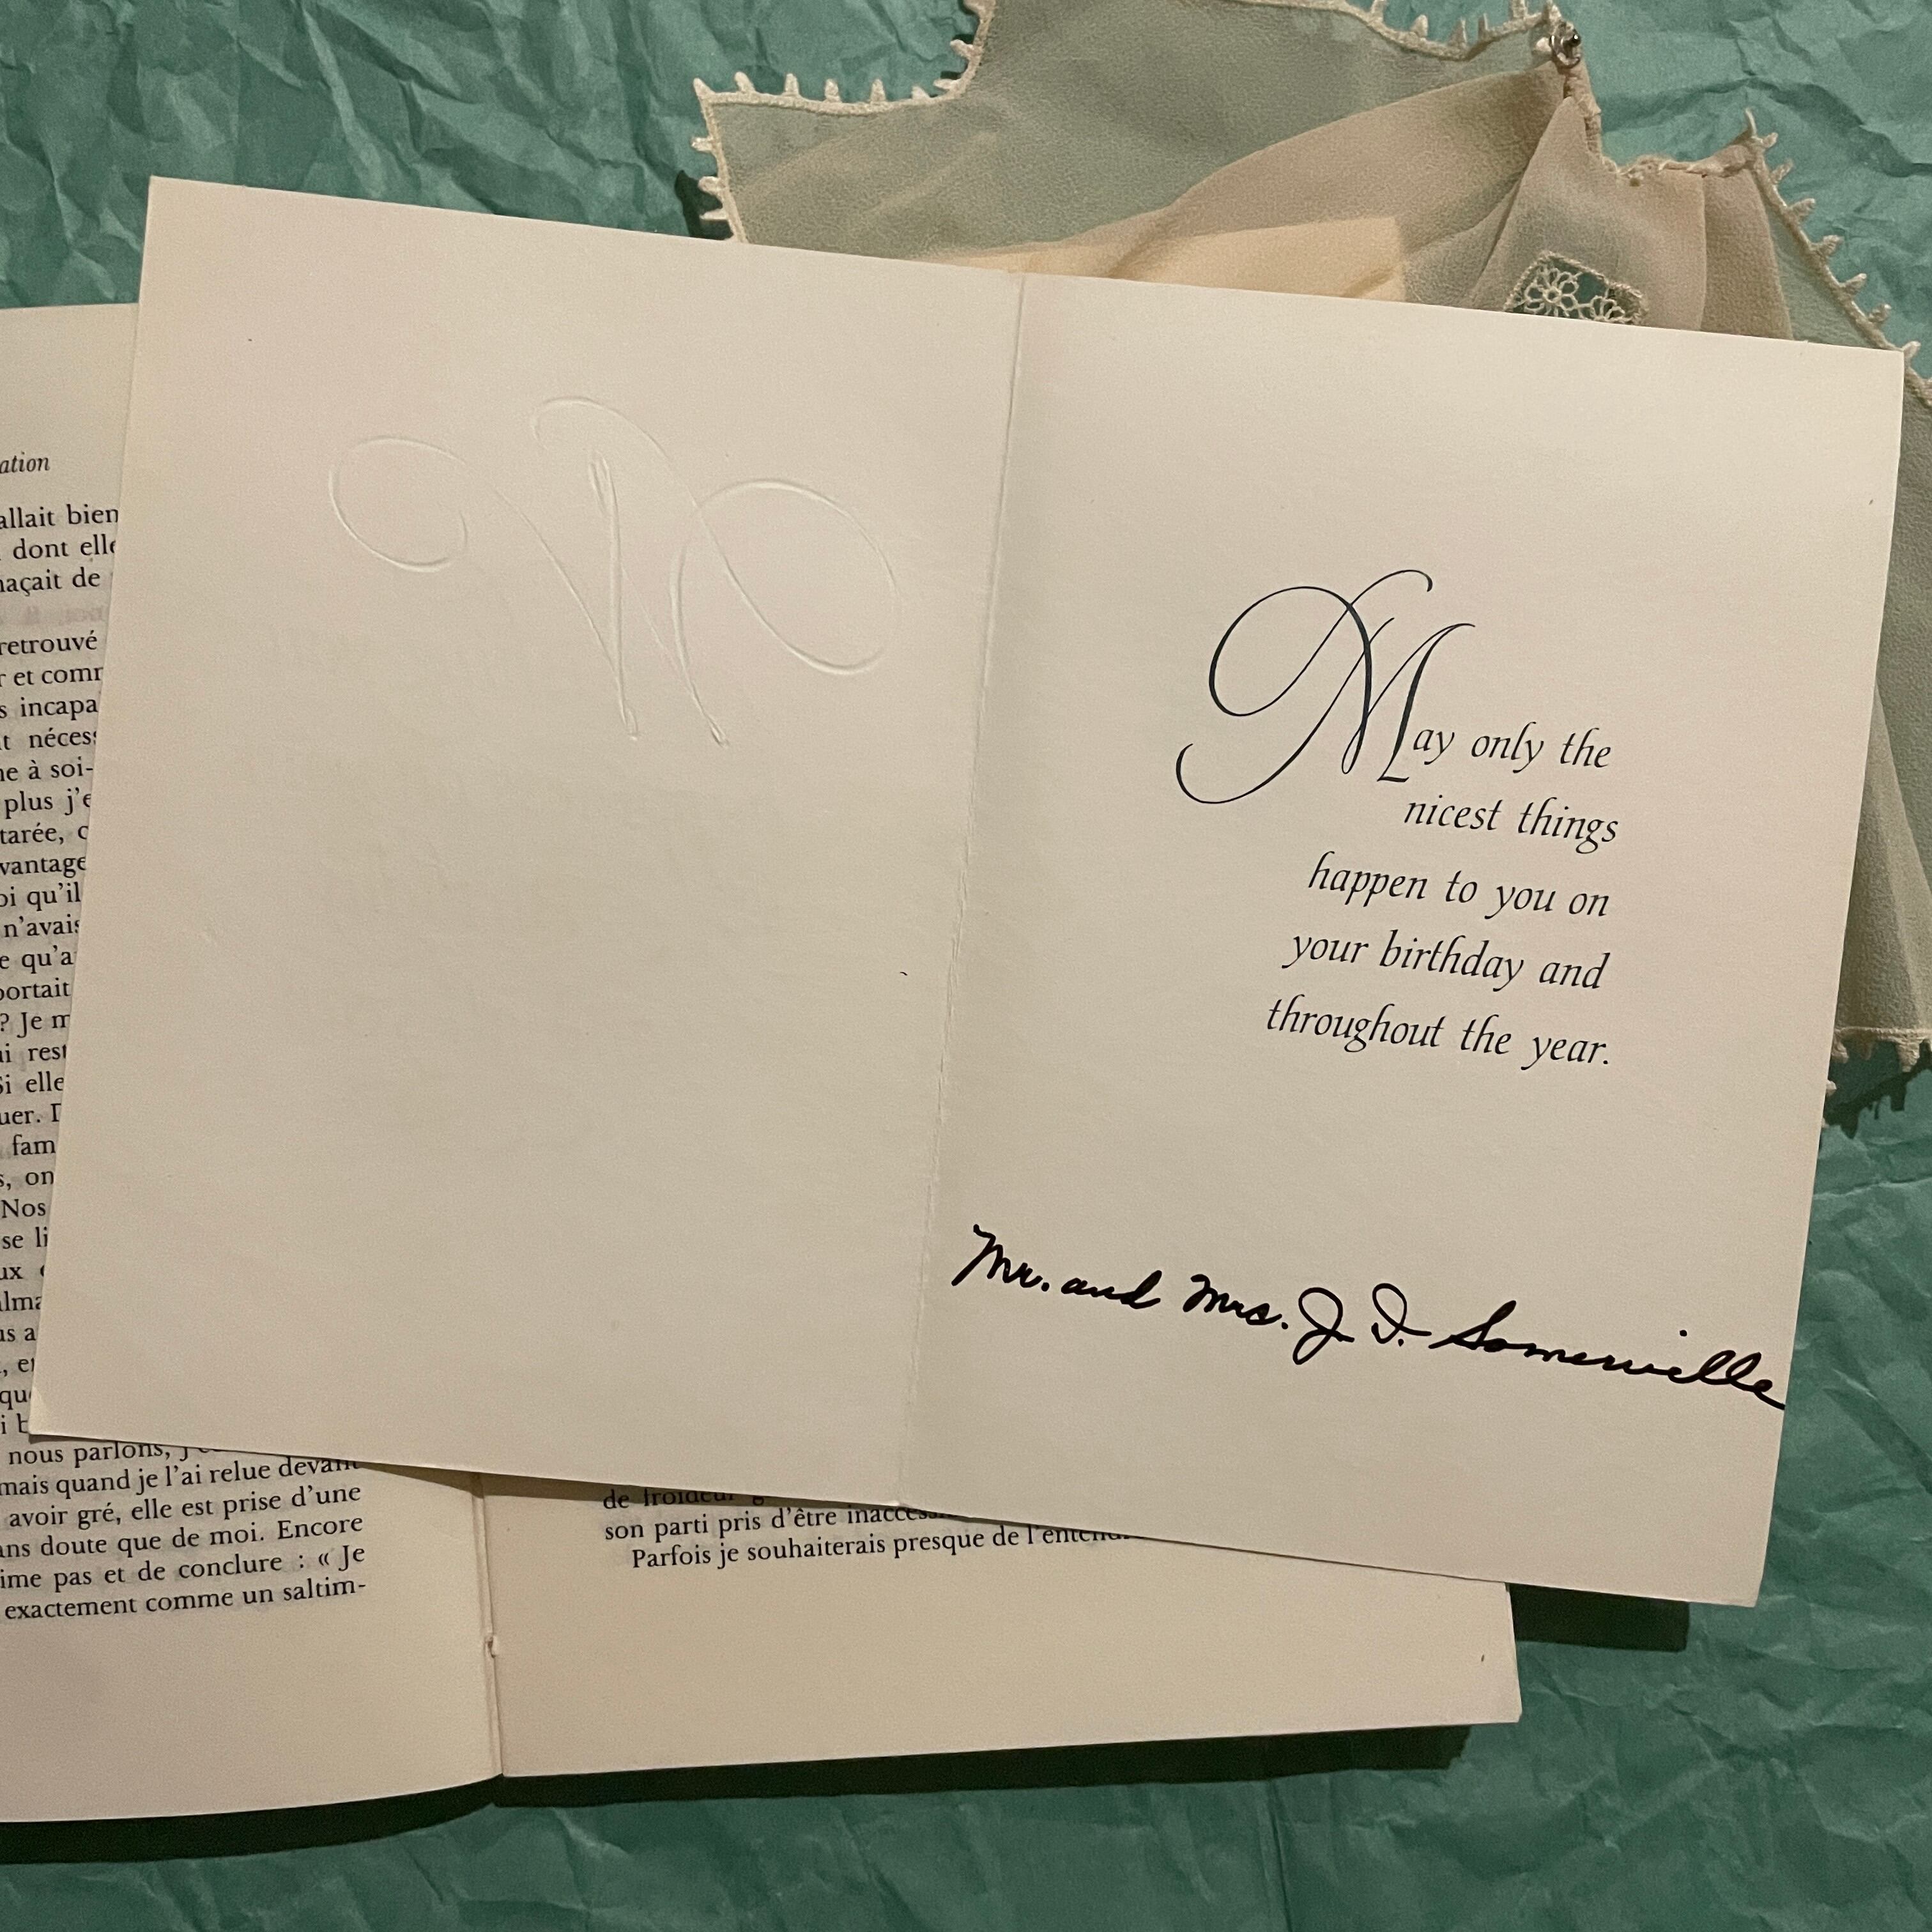 ation
allait bien
dont elle
naçait de
retrouvé
r et comm
s incapa
t nécess
ne à soi-
plus j'e
tarée, c
vantage
oi qu'il
n'avais
e qu'a
portait
? Je m
ui rest
Si elle
uer. D
fam
s, on
Nos
se li
ux
alma
us a
que
nous parlons, j'
mais quand je l'ai relue devant
avoir gré, elle est prise d'une
ans doute que de moi. Encore
ime pas et de conclure : « Je
exactement comme un saltim-
de froideur
son parti pris d'être inaccess
Parfois je souhaiterais presque de l'entend
May only the
nicest things
happen to you on
your birthday and
throughout the year.
Mr. and Mrs. J. D. Somerville